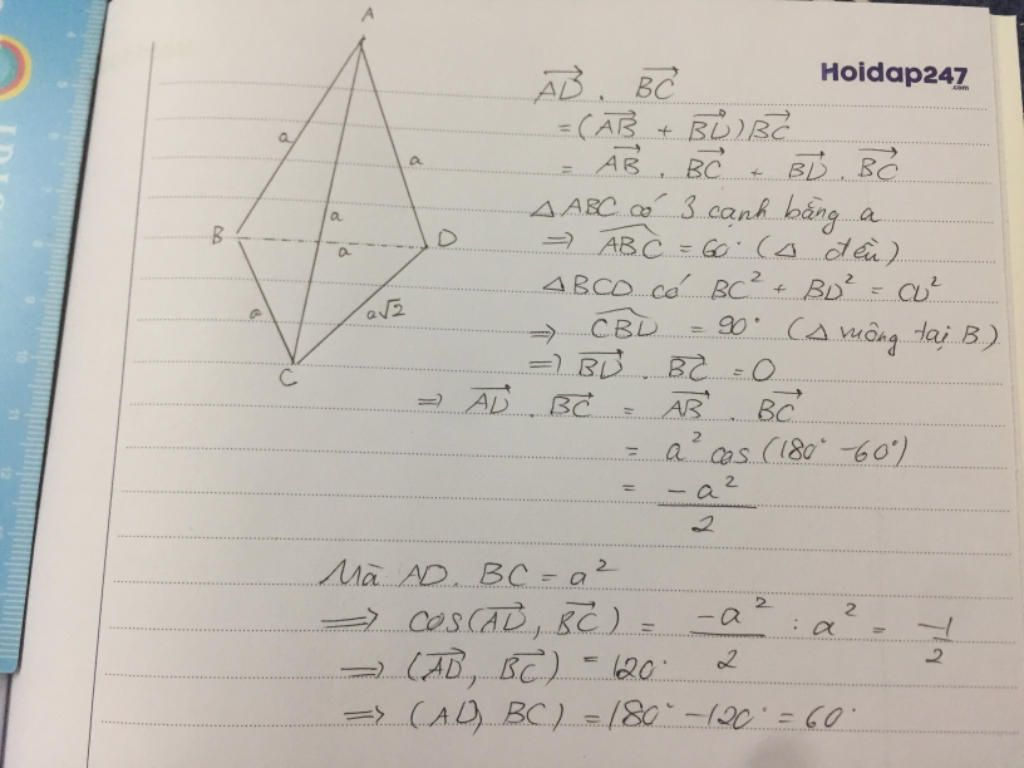 A
Hoidap247
.com
a
a
a
B
a
D
a
a√2
C
AD→ . BC→
= (AB→ + BD→)BC→
= AB→ . BC→ + BD→ . BC→
△ABC có 3 cạnh bằng a
=> ABC^ = 60° (△ đều)
△BCD có BC² + BD² = CD²
=> CBD^ = 90° (△ vuông tại B)
=> BD→ . BC→ = 0
=> AD→ . BC→ = AB→ . BC→
= a² cos (180° - 60°)
= -a²/2
Mà AD. BC = a²
=> cos(AD→, BC→) = -a²/2 : a² = -1/2
=> (AD→, BC→) = 120°
=> (AD, BC) = 180° - 120° = 60°